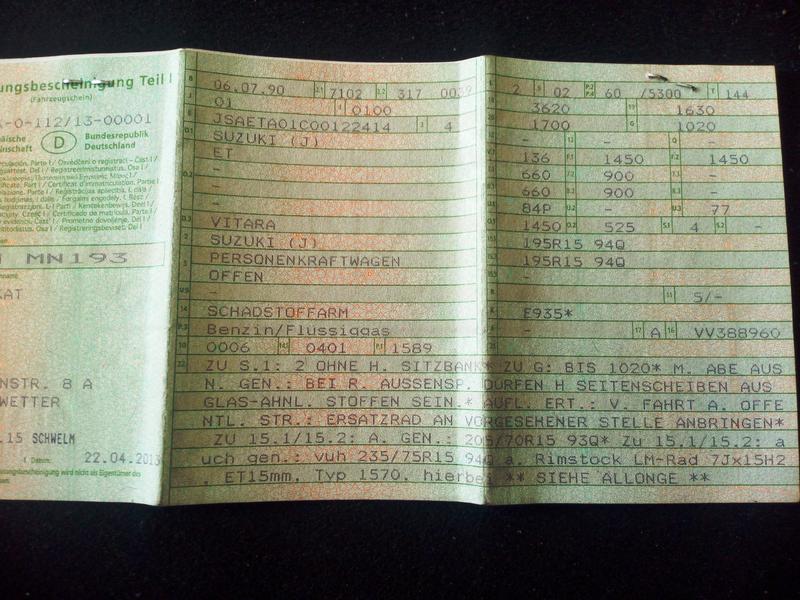 ungsbescheinigung Teil I
(Fahrzeugschein)
-0-112/13-00001
D
Bundesrepublik
Deutschland
MN193
KAT
NSTR. 8 A
WETTER
.15 SCHWELM
22.04.2013
06.07.90 7102 317 0039
01 0100
JSAETA01C00122414 4
SUZUKI (J)
ET
-
-
-
VITARA
SUZUKI (J)
PERSONENKRAFTWAGEN
OFFEN
-
SCHADSTOFFARM
Benzin/Flüssiggas
0006 0401 1589
2 02 60 /5300 144
3620 1630
1700 1020
- - -
136 1450 1450
660 900 -
660 900 -
84P - 77
1450 525 4 -
195R15 94Q
195R15 94Q
-
- 5/-
E935*
- A VV388960
ZU S.1: 2 OHNE H. SITZBANK* ZU G: BIS 1020* M. ABE AUS
N. GEN.: BEI R. AUSSENSP. DÜRFEN H SEITENSCHEIBEN AUS
GLAS-ÄHNL. STOFFEN SEIN.* AUFL. ERT.: V. FAHRT A. OFFE
NTL. STR.: ERSATZRAD AN VORGESEHENER STELLE ANBRINGEN*
ZU 15.1/15.2: A. GEN.: 205/70R15 93Q* Zu 15.1/15.2: a
uch gen.: vuh 235/75R15 94Q a. Rimstock LM-Rad 7Jx15H2
, ET15mm. Typ 1570. hierbei ** SIEHE ALLONGE **